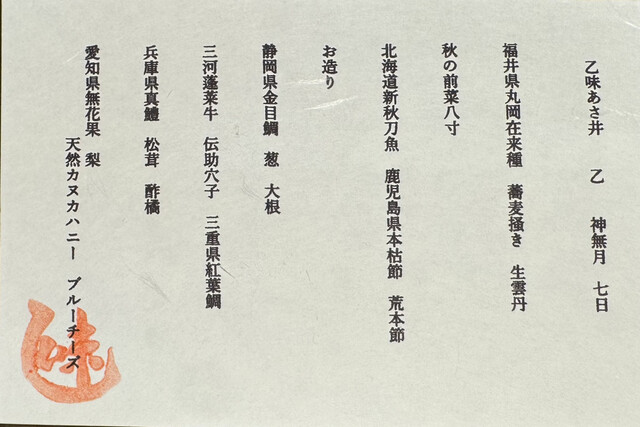 乙味あさ井　乙　神無月　七日
福井県丸岡在来種　蕎麦掻き　生雲丹
秋の前菜八寸
北海道新秋刀魚　鹿児島県本枯節　荒本節
お造り
静岡県金目鯛　葱　大根
三河蓬莱牛　伝助穴子　三重県紅葉鯛
兵庫県真鱧　松茸　酢橘
愛知県無花果　梨
天然カヌカハニー　ブルーチーズ
味